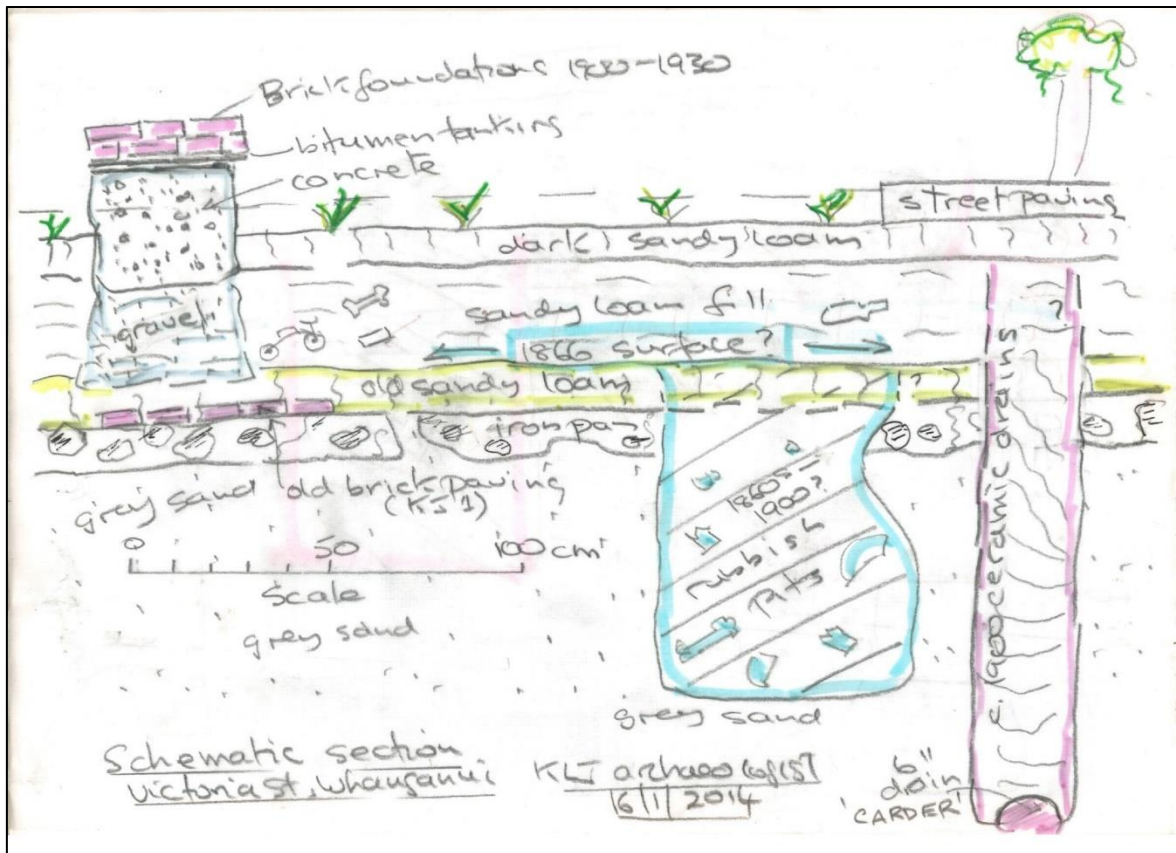 Brick foundations 1900-1930
bitumen tanking
concrete
street paving
dark sandy loam
gravel
sandy loam fill
1866 surface?
?
old sandy loam
iron pan
grey sand
old brick paving
(KJ1)
0 50 100 cm
Scale
grey sand
1860s-
1900?
rubbish
pits
c. 1900 ceramic drains
grey sand
Schematic section
Victoria St, Whanganui
KLJ archaeologist
6/1/2014
6"
drain
'CARDER'